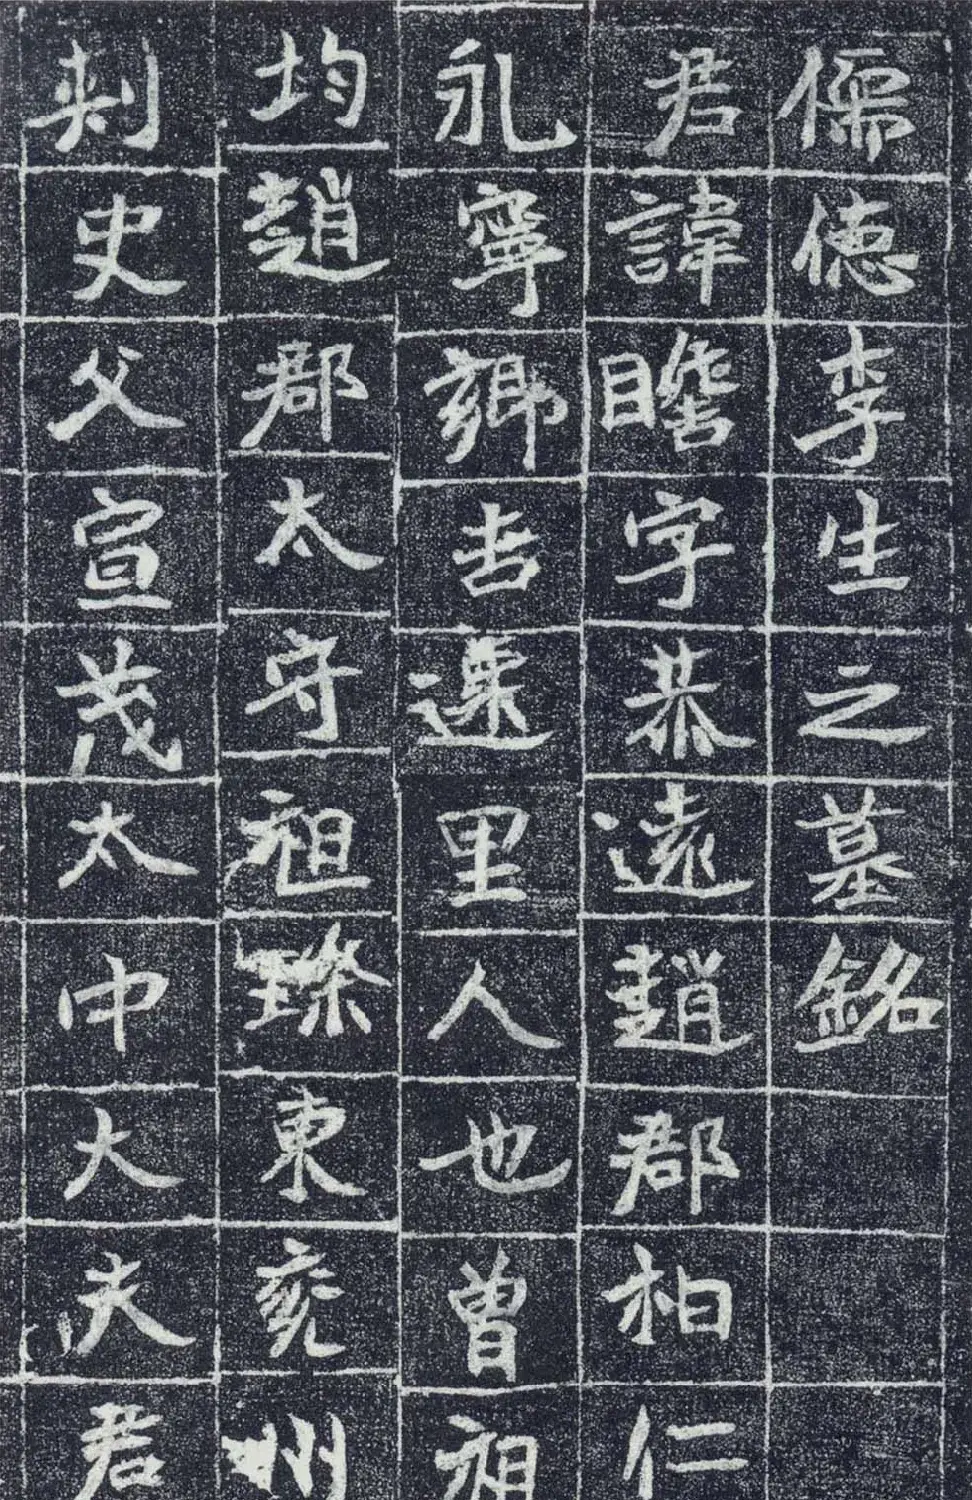 儒德李生之墓銘
君諱瞻字恭遠趙郡柏仁
永寧鄉吉遷里人也曾祖
均趙郡太守祖璨東兖州
刾史父宣茂太中大夫君